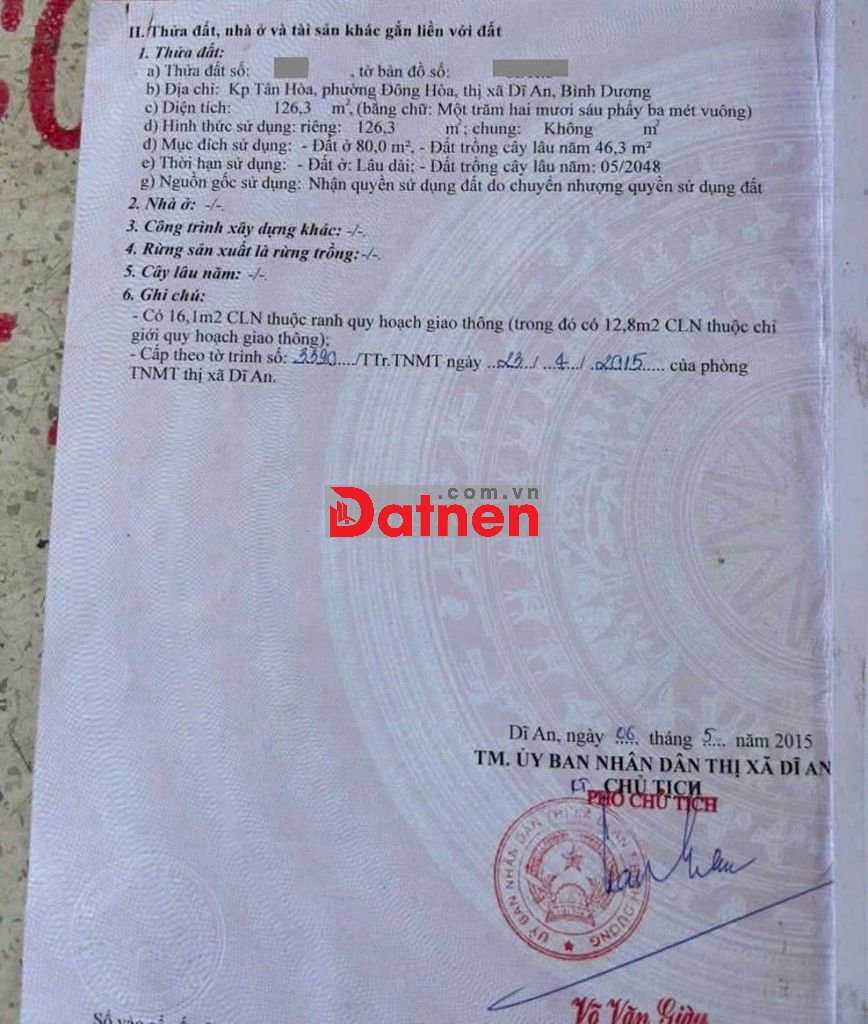 II. Thửa đất, nhà ở và tài sản khác gắn liền với đất
1. Thửa đất:
a) Thửa đất số: , tờ bản đồ số:
b) Địa chỉ: Kp Tân Hòa, phường Đông Hòa, thị xã Dĩ An, Bình Dương
c) Diện tích: 126,3 m², (bằng chữ: Một trăm hai mươi sáu phẩy ba mét vuông)
d) Hình thức sử dụng: riêng: 126,3 m²; chung: Không m²
đ) Mục đích sử dụng: - Đất ở 80,0 m², - Đất trồng cây lâu năm 46,3 m²
e) Thời hạn sử dụng: - Đất ở: Lâu dài; - Đất trồng cây lâu năm: 05/2048
g) Nguồn gốc sử dụng: Nhận quyền sử dụng đất do chuyển nhượng quyền sử dụng đất
2. Nhà ở: -/-.
3. Công trình xây dựng khác: -/-.
4. Rừng sản xuất là rừng trồng:-/-.
5. Cây lâu năm: -/-.
6. Ghi chú:
- Có 16,1m2 CLN thuộc ranh quy hoạch giao thông (trong đó có 12,8m2 CLN thuộc chỉ
giới quy hoạch giao thông);
- Cấp theo tờ trình số: 3390..../TTr.TNMT ngày ..23../ ..4.../ ..2015..... của phòng
TNMT thị xã Dĩ An.
.com.vn
Datnen
Dĩ An, ngày 06 tháng 5 năm 2015
TM. ỦY BAN NHÂN DÂN THỊ XÃ DĨ AN
KT. CHỦ TỊCH
PHÓ CHỦ TỊCH
Võ Văn Giàu